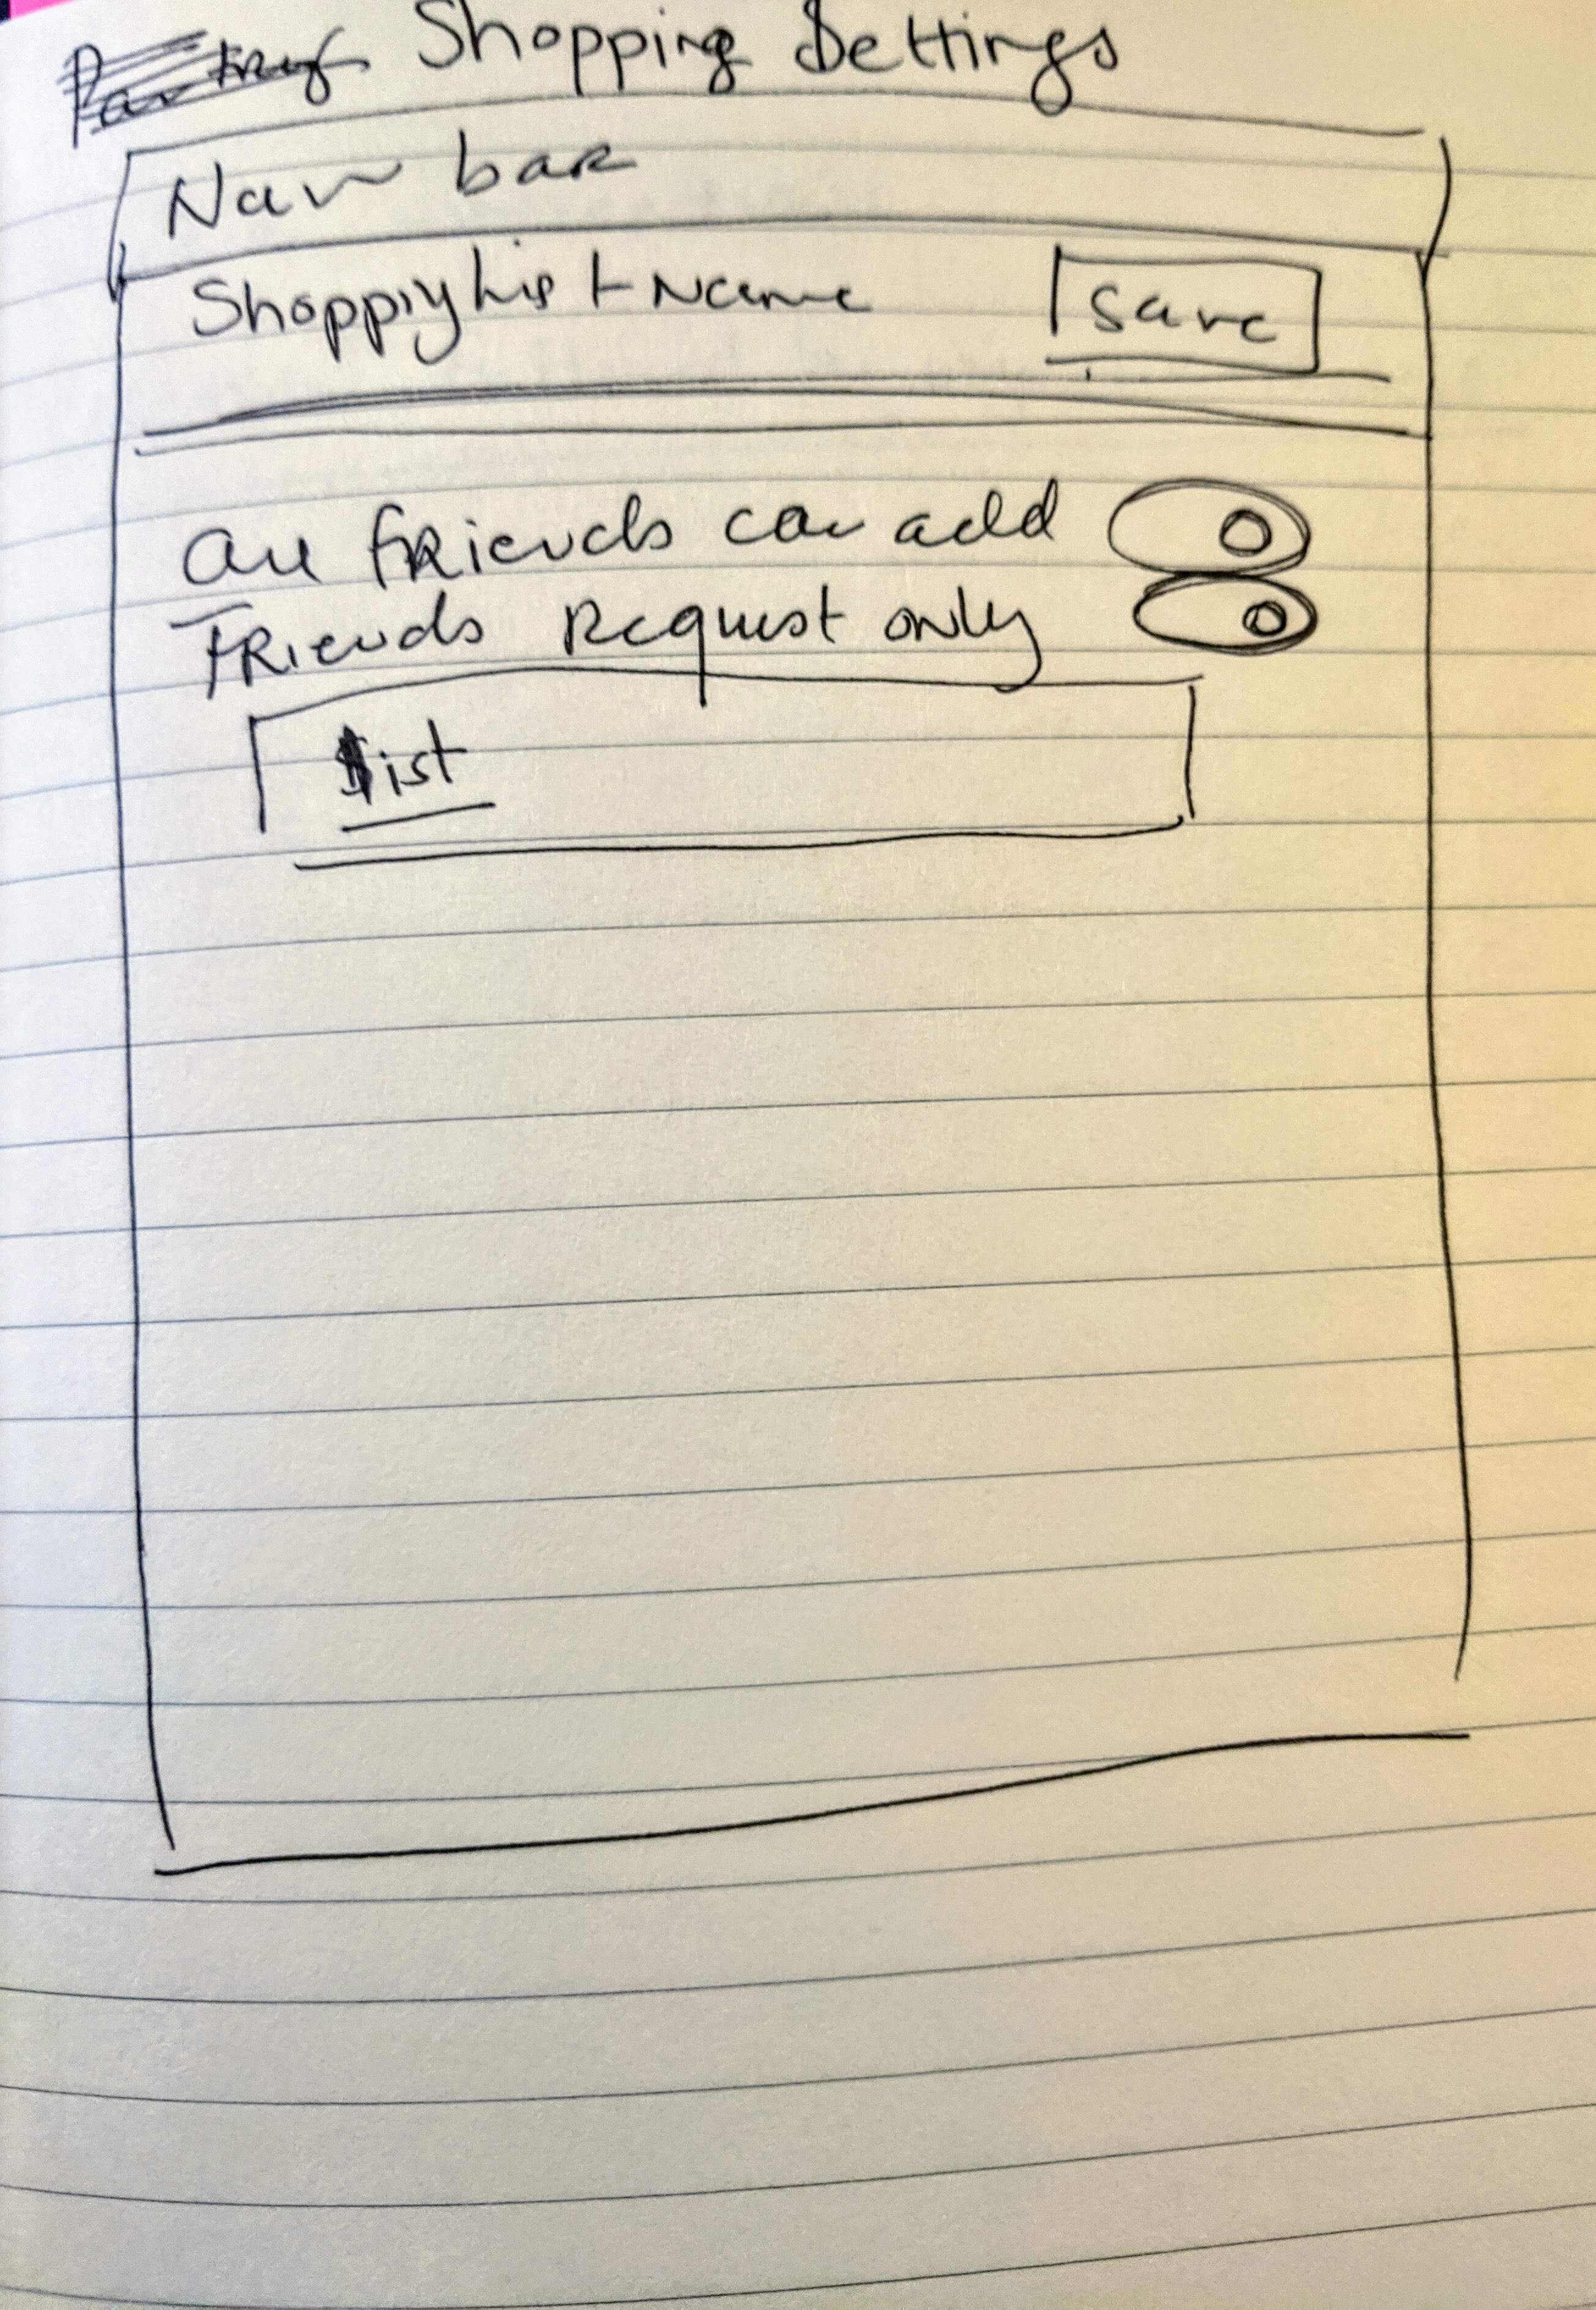 Pantry Shopping Settings
Nav bar
Shopping List Name Save
All friends can add
Friends Request only
List